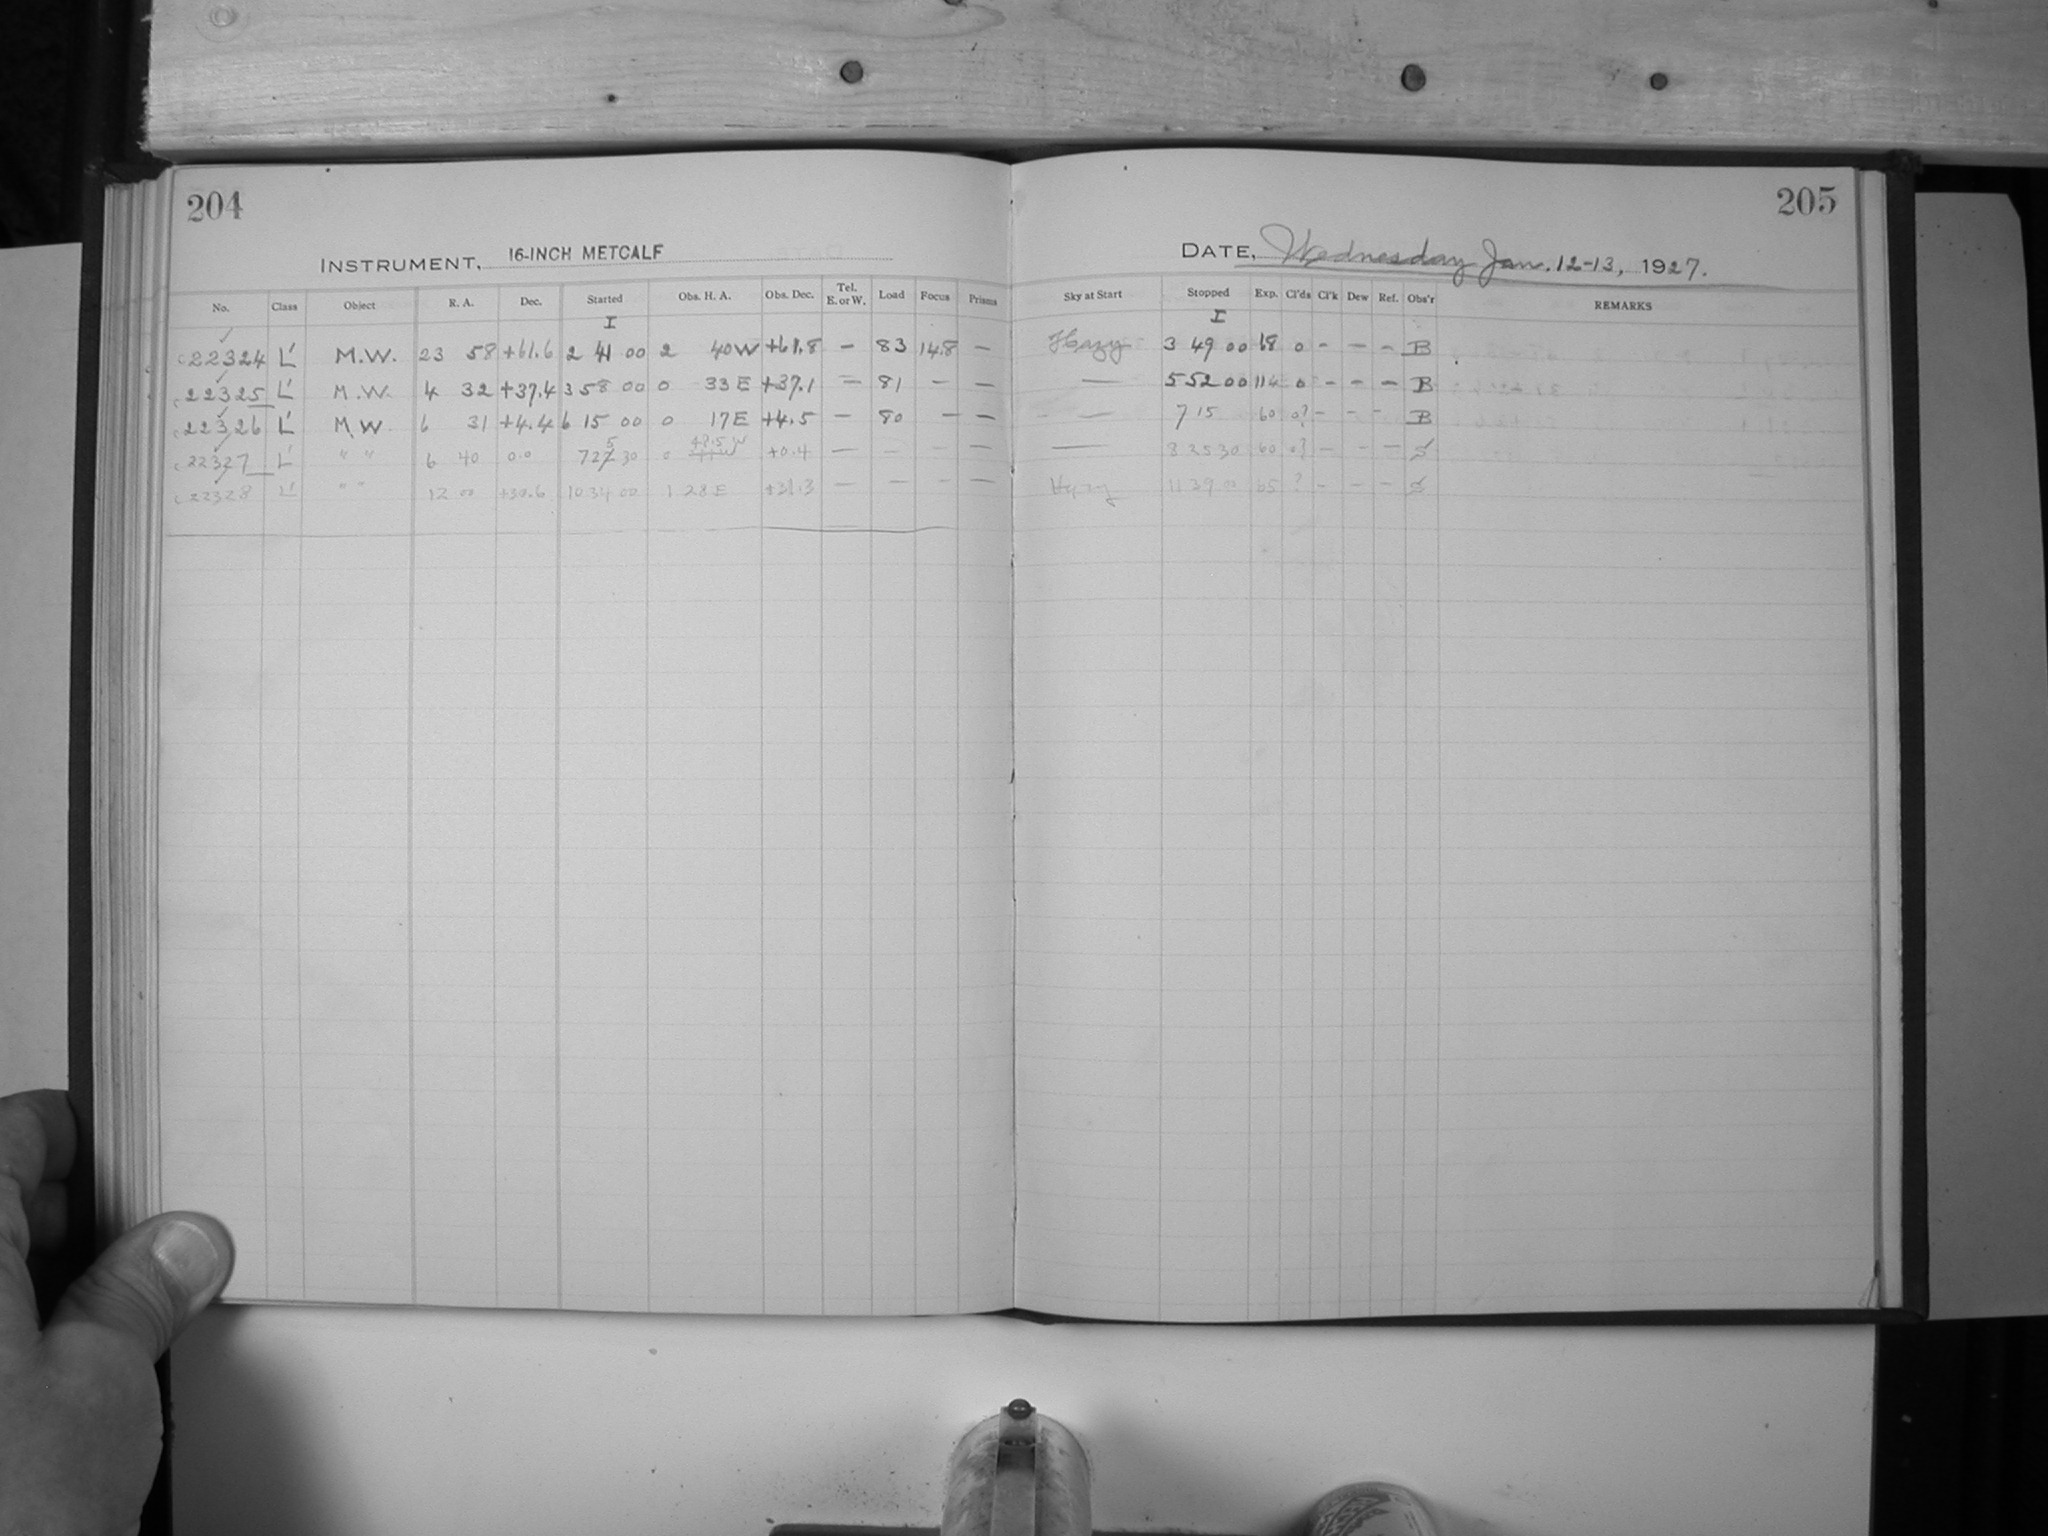 204
205
INSTRUMENT, 16-INCH METCALF
DATE, Wednesday Jan. 12-13, 1927.
No. Class Object R. A. Dec. Started Obs. H. A. Obs. Dec. Tel. E. or W. Load Focus Prisms Sky at Start Stopped Exp. Cl'ds Cl'k Dew Ref. Obs'r REMARKS
I I
22324 L' M.W. 23 58 +61.6 2 41 00 2 40 W +61.8 — 83 14.8 — Hazy 3 49 00 68 0 - - - B
22325 L' M.W. 4 32 +37.4 3 58 00 0 33 E +37.1 — 81 — — — 5 52 00 114 0 - - - B
22326 L' M.W 6 31 +4.4 6 15 00 0 17 E +4.5 — 80 — — — 7 15 60 0? - - - B
22327 L' " " 6 40 0.0 7 25 30 0 +0.4 — — — — — 8 25 30 60 0? - - -
22328 L' " " 12 00 +30.6 10 34 00 1 28 E +31.3 — — — — Hazy 11 39 00 65 ? - - -